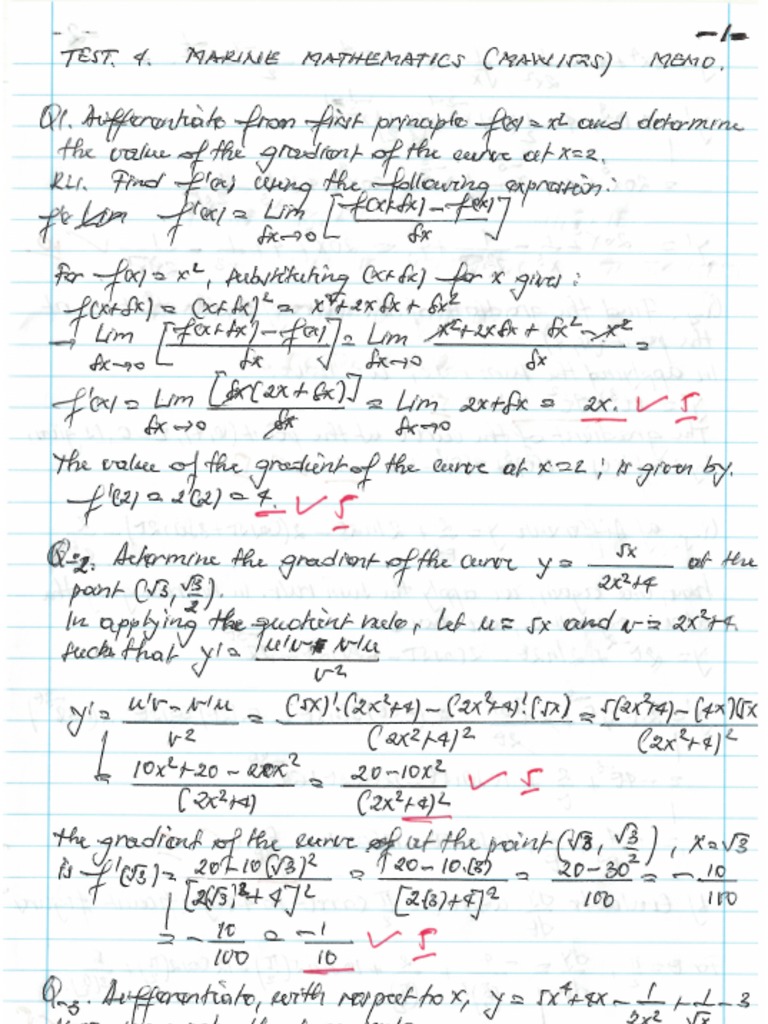 -1-
TEST. 4. MARINE MATHEMATICS (MAW1525) MEMO.
Q1. Differentiate from first principle f(x) = x² and determine
the value of the gradient of the curve at x=2.
Find f'(x) using the following expression:
f'(x) = Lim δx→0 [f(x+δx) - f(x) / δx]
For f(x) = x², substituting (x+δx) for x gives:
f(x+δx) = (x+δx)² = x²+2xδx+δx²
→ Lim δx→0 [f(x+δx) - f(x) / δx] = Lim δx→0 x²+2xδx+δx²-x² / δx =
f'(x) = Lim δx→0 [δx(2x+δx)] / δx = Lim δx→0 2x+δx = 2x. ✓ 5
The value of the gradient of the curve at x=2; is given by.
f'(2) = 2(2) = 4. ✓ 5
Q-2. Determine the gradient of the curve y = 5x / 2x²+4 at the
point (√3, √3/2).
In applying the quotient rule, let u = 5x and v = 2x²+4
such that y' = u'v - v'u / v²
y' = u'v - v'u / v² = (5x)'.(2x²+4) - (2x²+4)'.(5x) / (2x²+4)² = 5(2x²+4) - (4x)(5x / (2x²+4)²
= 10x²+20-20x² / (2x²+4) = 20-10x² / (2x²+4)² ✓ 5
The gradient of the curve of at the point (√3, √3/2), x=√3
is f'(√3) = 20-10(√3)² / [2(√3)²+4]² = 20-10.(3) / [2(3)+4]² = 20-30 / 100 = - 10/100
= - 10/100 = -1/10 ✓ 5
Q-3. Differentiate, with respect to x, y = 5x⁴+4x - 1/2x² + 1/√x - 3